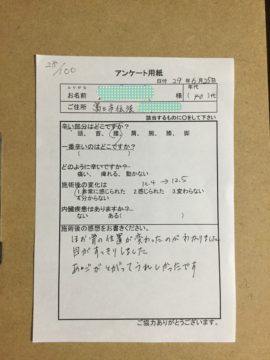 28/100
アンケート用紙
日付 29年6月25日
ふりがな
お名前 様
年代
(40)代
ご住所 富士市伝法
該当するものに○をして下さい
辛い部分はどこですか?
頭、首、腰、肩、腕、膝、脚
一番辛いのはどこですか?
( )
どのように辛いですか?
痛い、痺れる、動かない
施術後の変化は 11.4 → 12.5
1.非常に感じられた 2.感じられた 3.変わらない
4.分からない
内臓疾患はありますか?
ない ある( )
施術後の感想をお書きください。
ほお骨の位置が変わったのがわかりました
目がすっきりしました
あゴがとがってうれしかったです
ご協力ありがとうございます。